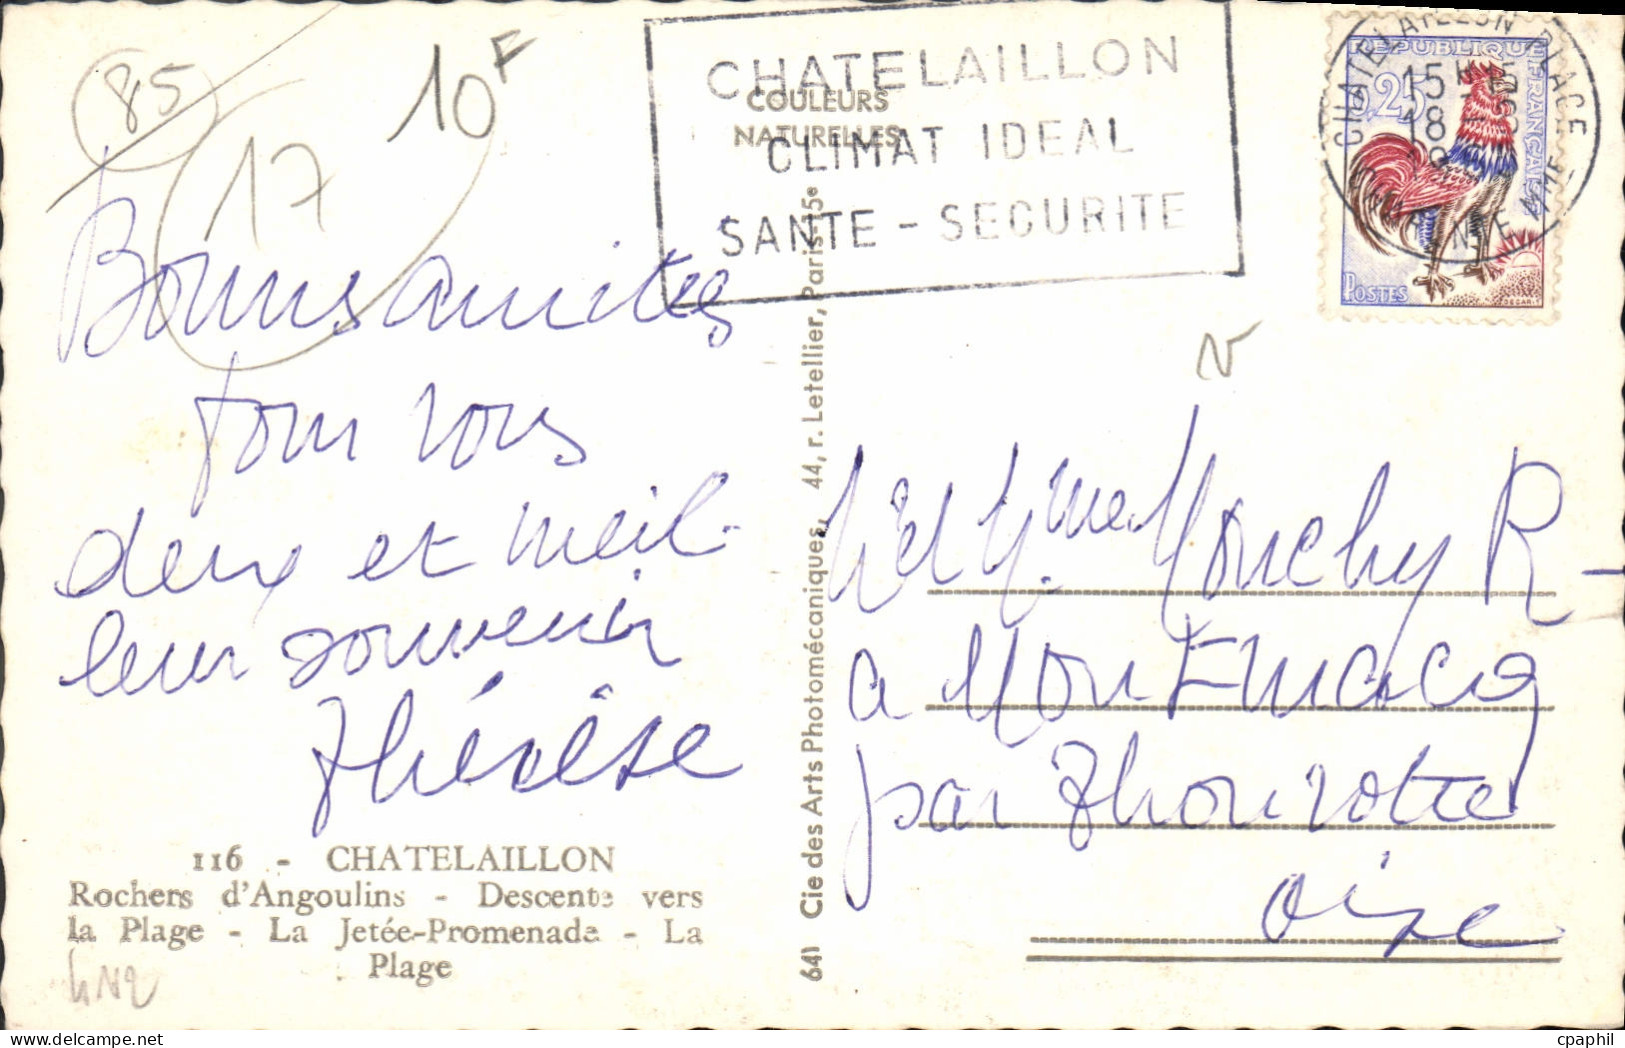 85
10F
17
CHATELAILLON
CLIMAT IDEAL
SANTE - SECURITE
COULEURS
NATURELLES
CHATELAILLON PLAGE
15H
18 - 5
CHARENTE MME
REPUBLIQUE FRANÇAISE
0,25
POSTES
Bonnes amities
pour vous
deux et meil-
leur souvenir
Thérèse
116 - CHATELAILLON
Rochers d'Angoulins - Descente vers
la Plage - La Jetée-Promenade - La
Plage
641 Cie des Arts Photomécaniques, 44, r. Letellier, Paris-15e
Mme Mouchy R-
a
par Thourotte
Oise